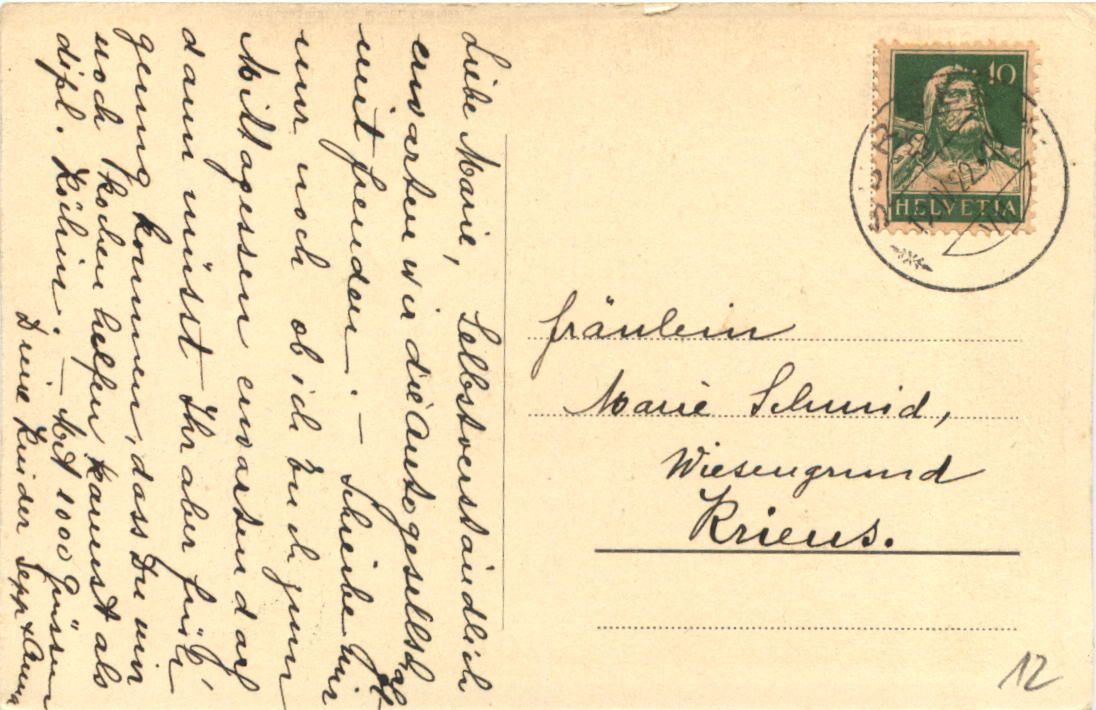 Liebe Marie, Selbstverständlich
erwarten wir die Autogesellschaft
mit Freuden. — Schreibe mir
nur noch ob ich Euch zum
Mittagessen erwarten darf
dann müsst Ihr aber früh
genug kommen, dass Du mir
noch kochen helfen kannst als
dipl. Köchin. — Mit 1000 Grüssen
Deine Kinder Sepp & Anna
10
HELVETIA
Fräulein
Marie Schmid,
Wiesengrund
Kriens.
12